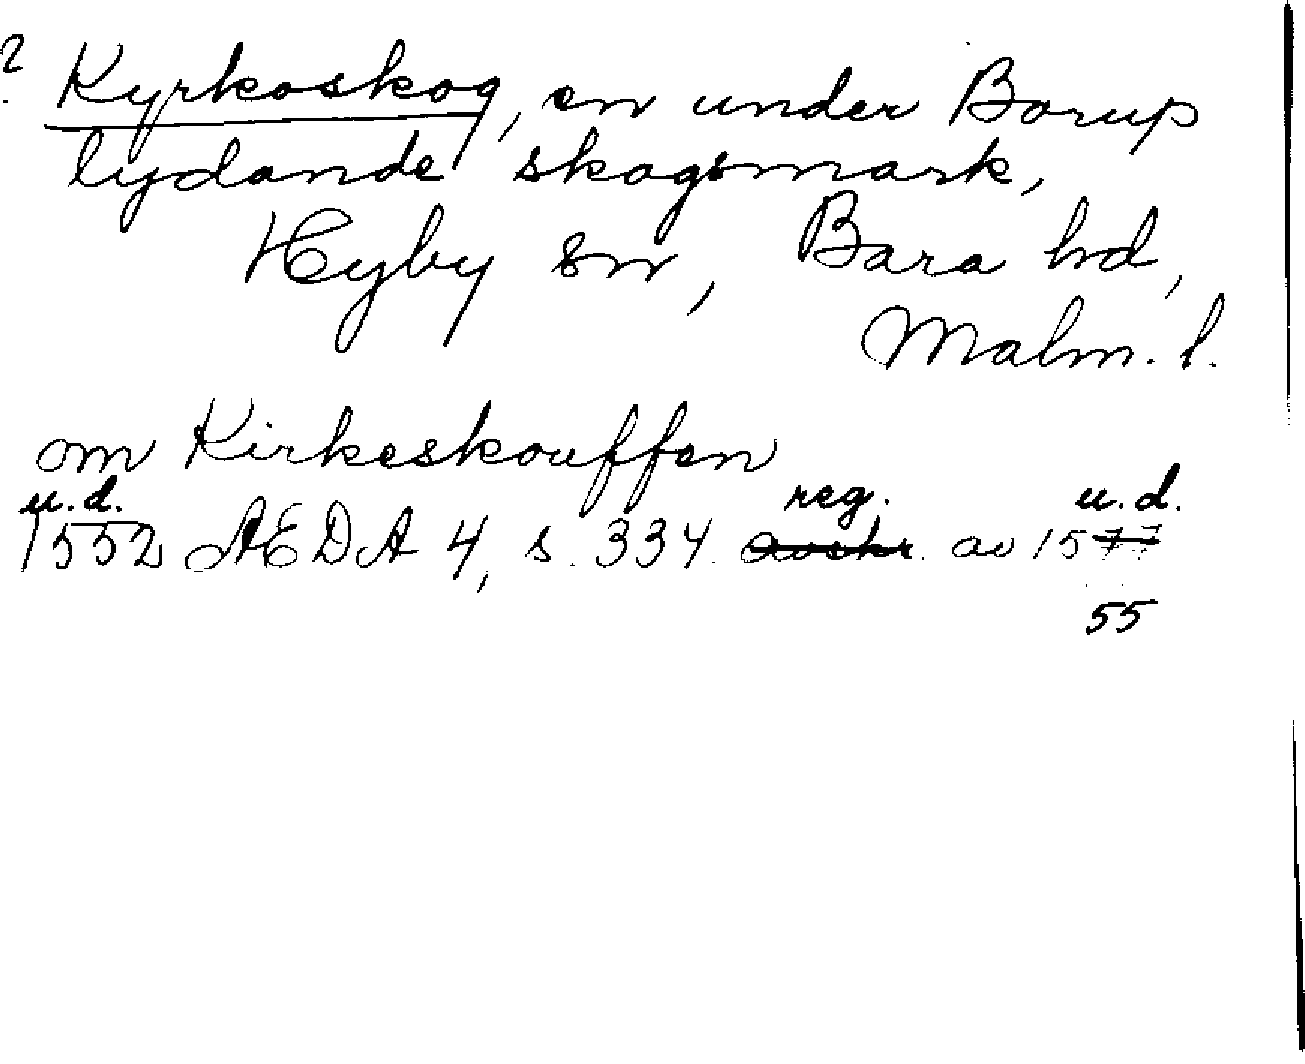 ? Kyrkoskog, en under Borup
lydande skogsmark,
Hyby sn, Bara hd,
Malm. l.
om Kirkeskouffen
u.d. reg. u.d.
1552 AEDA 4, s. 334. avskr. av 1577
55